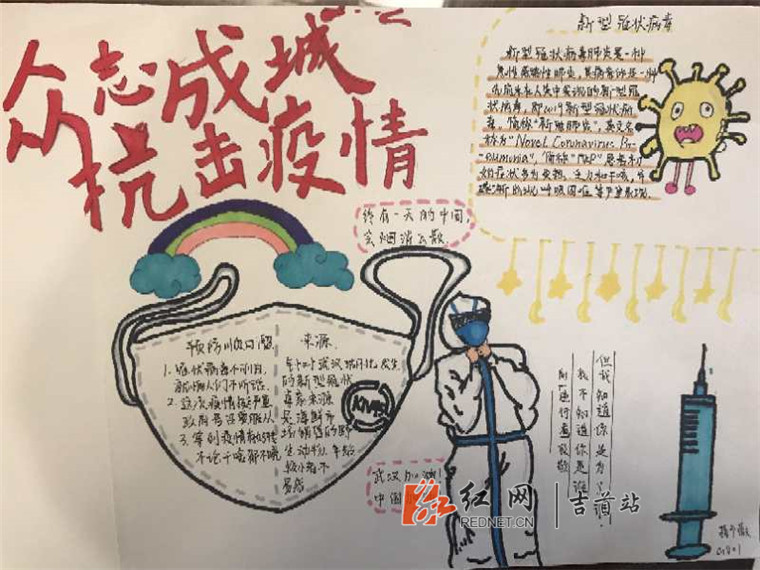 众志成城
抗击疫情
新型冠状病毒
新型冠状病毒肺炎是一种
急性感染性肺炎,其病毒体是一种
先前未在人类中发现的新型冠
状病毒,即2019新型冠状病
毒。简称"新冠肺炎",英文名
称为"Novel Coronavirus Pn-
eumonia",简称"NCP"患者初
始症状多为发热、乏力和干咳,并
逐渐出现呼吸困难等严重表现。
终有一天的中国
会烟消云散
预防顺口溜
1. 冠状病毒不可怕
就怕人们不听话
2. 这次疫情较严重
政府号召要服从
3. 看到疫情有好转
来源
的新型冠状
是海鲜市
生动物,年轻
KN95
武汉加油!
中国
但我知道你是为了谁
我不知道你是谁
向逆行者致敬
红网 吉首站
REDNET.CN